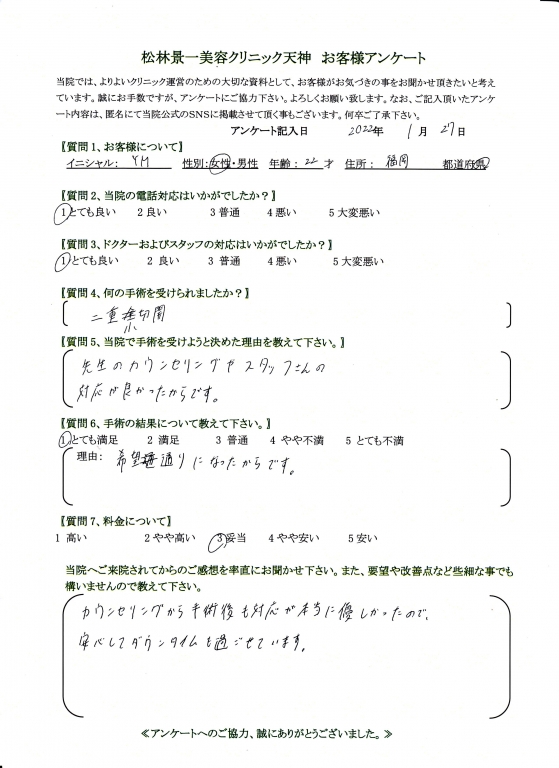 松林景一美容クリニック天神　お客様アンケート
当院では、よりよいクリニック運営のための大切な資料として、お客様がお気づきの事をお聞かせ頂きたいと考え
ています。誠にお手数ですが、アンケートにご協力下さい。よろしくお願い致します。なお、ご記入頂いたアンケ
ート内容は、匿名にて当院公式のSNSに掲載させて頂く事もございます。何卒ご了承下さい。
アンケート記入日　2022年　1月　27日
【質問1、お客様について】
イニシャル：YM　性別：女性・男性　年齢：22才　住所：福岡　都道府県
【質問2、当院の電話対応はいかがでしたか？】
1とても良い　2 良い　3 普通　4 悪い　5 大変悪い
【質問3、ドクターおよびスタッフの対応はいかがでしたか？】
1とても良い　2 良い　3 普通　4 悪い　5 大変悪い
【質問4、何の手術を受けられましたか？】
二重 小切開
【質問5、当院で手術を受けようと決めた理由を教えて下さい。】
先生のカウンセリングやスタッフさんの
対応が良かったからです。
【質問6、手術の結果について教えて下さい。】
1とても満足　2 満足　3 普通　4 やや不満　5 とても不満
理由：希望通りになったからです。
【質問7、料金について】
1 高い　2 やや高い　3 妥当　4 やや安い　5 安い
当院へご来院されてからのご感想を率直にお聞かせ下さい。また、要望や改善点など些細な事でも
構いませんので教えて下さい。
カウンセリングから手術後も対応が本当に優しかったので、
安心してダウンタイムも過ごせています。
≪アンケートへのご協力、誠にありがとうございました。≫